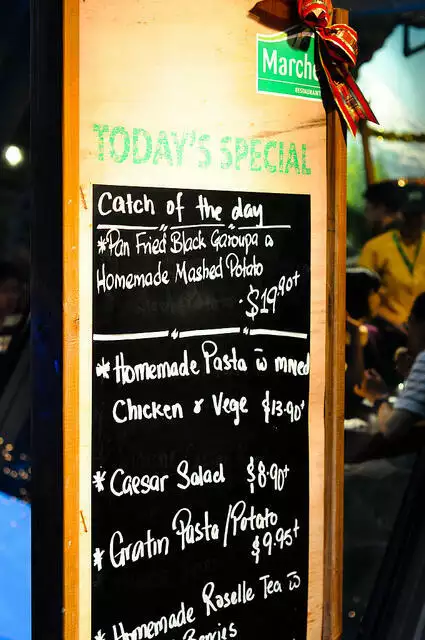 Marche
RESTAURANT
TODAY'S SPECIAL
Catch of the day
*Pan Fried Black Garoupa a
Homemade Mashed Potato
$19.90+
* Homemade Pasta w mned
Chicken & Vege $13.90+
* Caesar Salad $8.90+
* Gratin Pasta/Potato
$9.95+
* Homemade Roselle Tea w
Berries